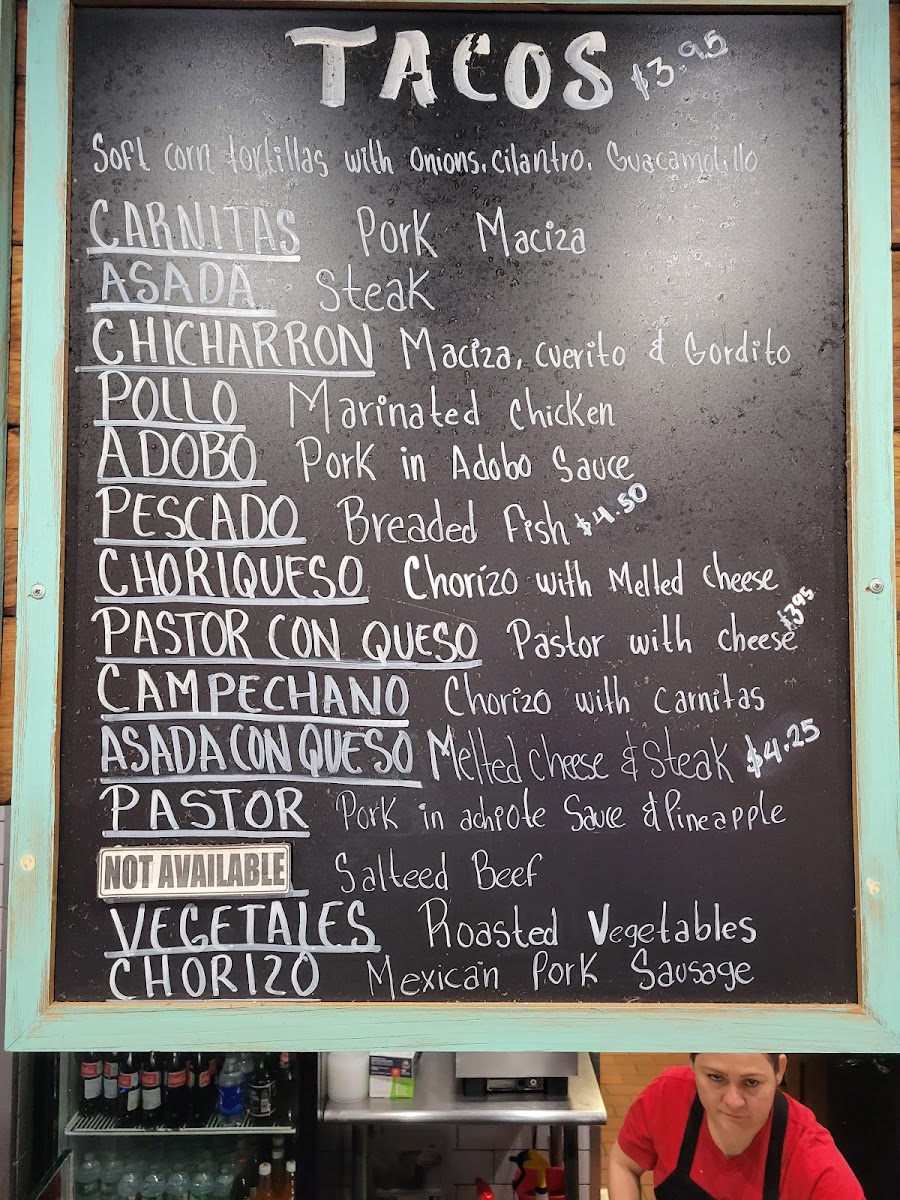 TACOS $3.95
Soft corn tortillas with onions, cilantro, Guacamolillo
CARNITAS Pork Maciza
ASADA Steak
CHICHARRON Maciza, cuerito & Gordito
POLLO Marinated chicken
ADOBO Pork in Adobo Sauce
PESCADO Breaded fish $4.50
CHORIQUESO Chorizo with Melted cheese
PASTOR CON QUESO Pastor with cheese $3.95
CAMPECHANO Chorizo with carnitas
ASADA CON QUESO Melted cheese & Steak $4.25
PASTOR Pork in achiote Sauce & Pineapple
NOT AVAILABLE Salteed Beef
VEGETALES Roasted Vegetables
CHORIZO Mexican Pork Sausage